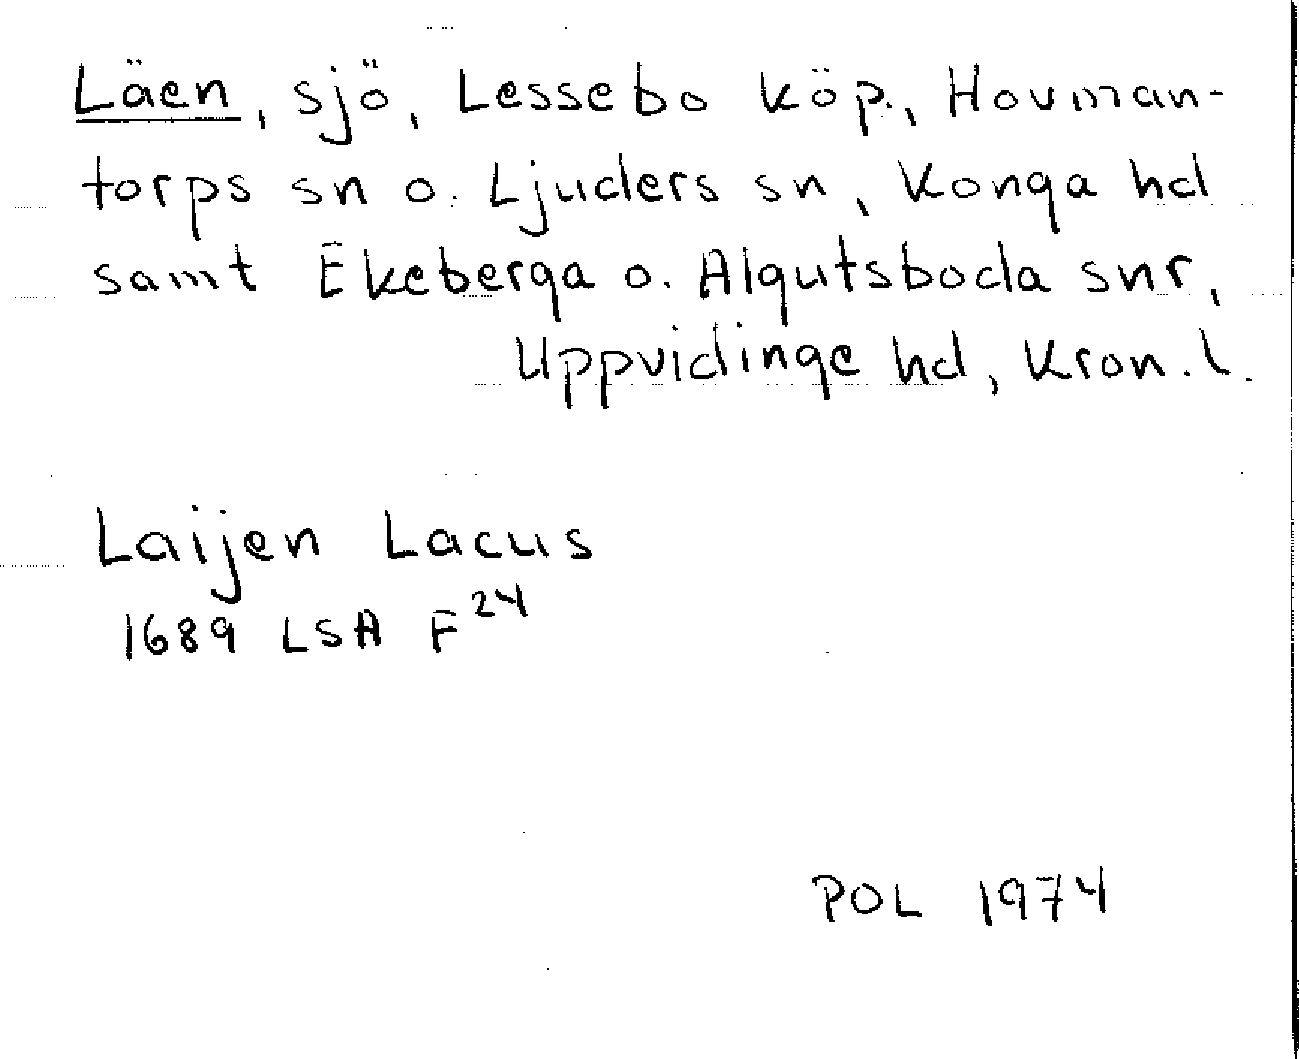 Läen, sjö, Lessebo köp., Hovman-
torps sn o. Ljuders sn, Konga hd
samt Ekeberga o. Algutsboda snr,
Uppvidinge hd, Kron. l.
Laijen Lacus
1689 LSA F²⁴
POL 1974